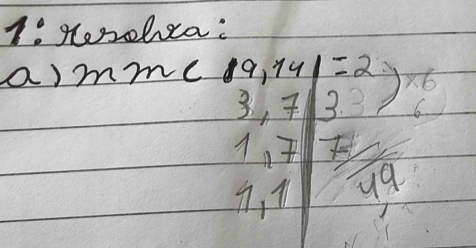 1: Resolva:
a) mmc (9,14) = 2
3, 7 3
1, 7 7
1, 1 49